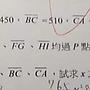 450，BC = 510，CA
、FG、HI 均過 P 點
、BC、CA，試求